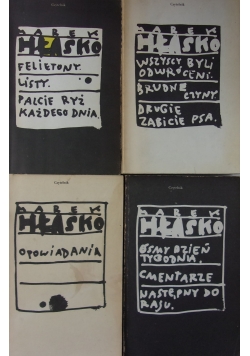 MAREK
HŁASKO
FELIETONY.
LISTY.
PALCIE RYŻ
KAŻDEGO DNIA.
MAREK
HŁASKO
WSZYSCY BYLI
ODWRÓCENI.
BRUDNE
CZYNY.
DRUGIE
ZABICIE PSA.
MAREK
HŁASKO
OPOWIADANIA
MAREK
HŁASKO
ÓSMY DZIEŃ
TYGODNIA.
CMENTARZE
NASTĘPNY DO
RAJU.